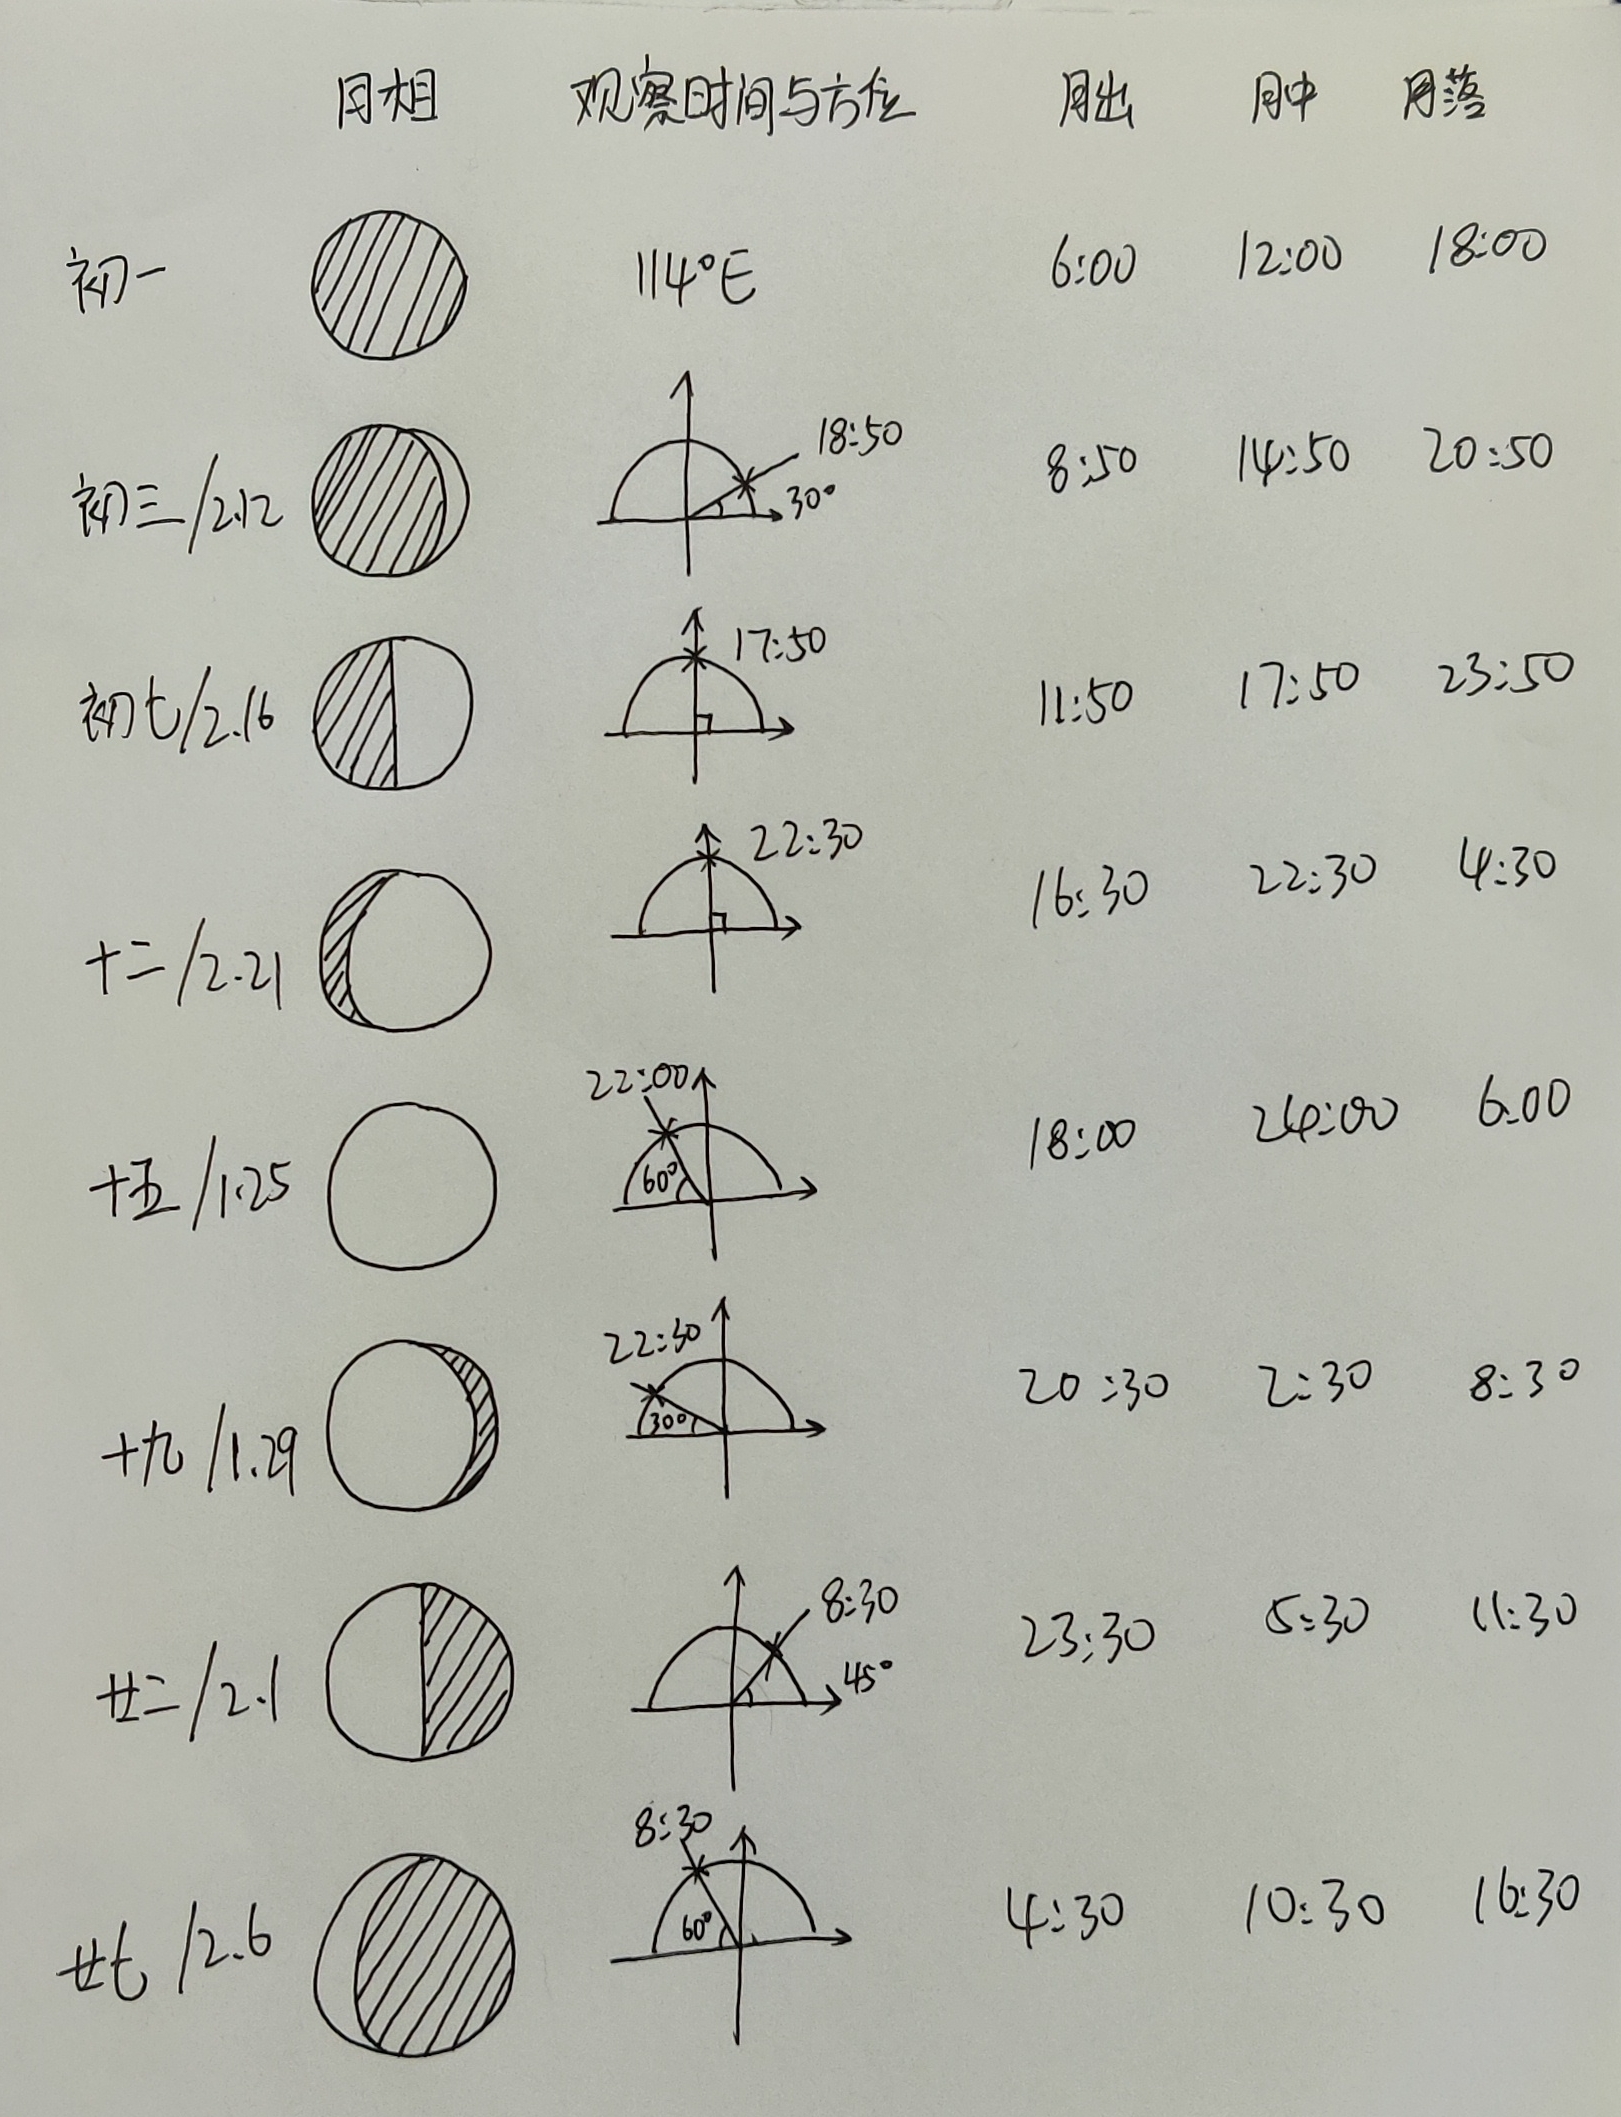 月相 观察时间与方位 月出 月中 月落
初一 114°E 6:00 12:00 18:00
初三/2.12 18:50 30° 8:50 14:50 20:50
初七/2.16 17:50 11:50 17:50 23:50
十二/2.21 22:30 16:30 22:30 4:30
十五/1.25 22:00 60° 18:00 24:00 6:00
十九/1.29 22:30 30° 20:30 2:30 8:30
廿二/2.1 8:30 45° 23:30 5:30 11:30
廿七/2.6 8:30 60° 4:30 10:30 16:30